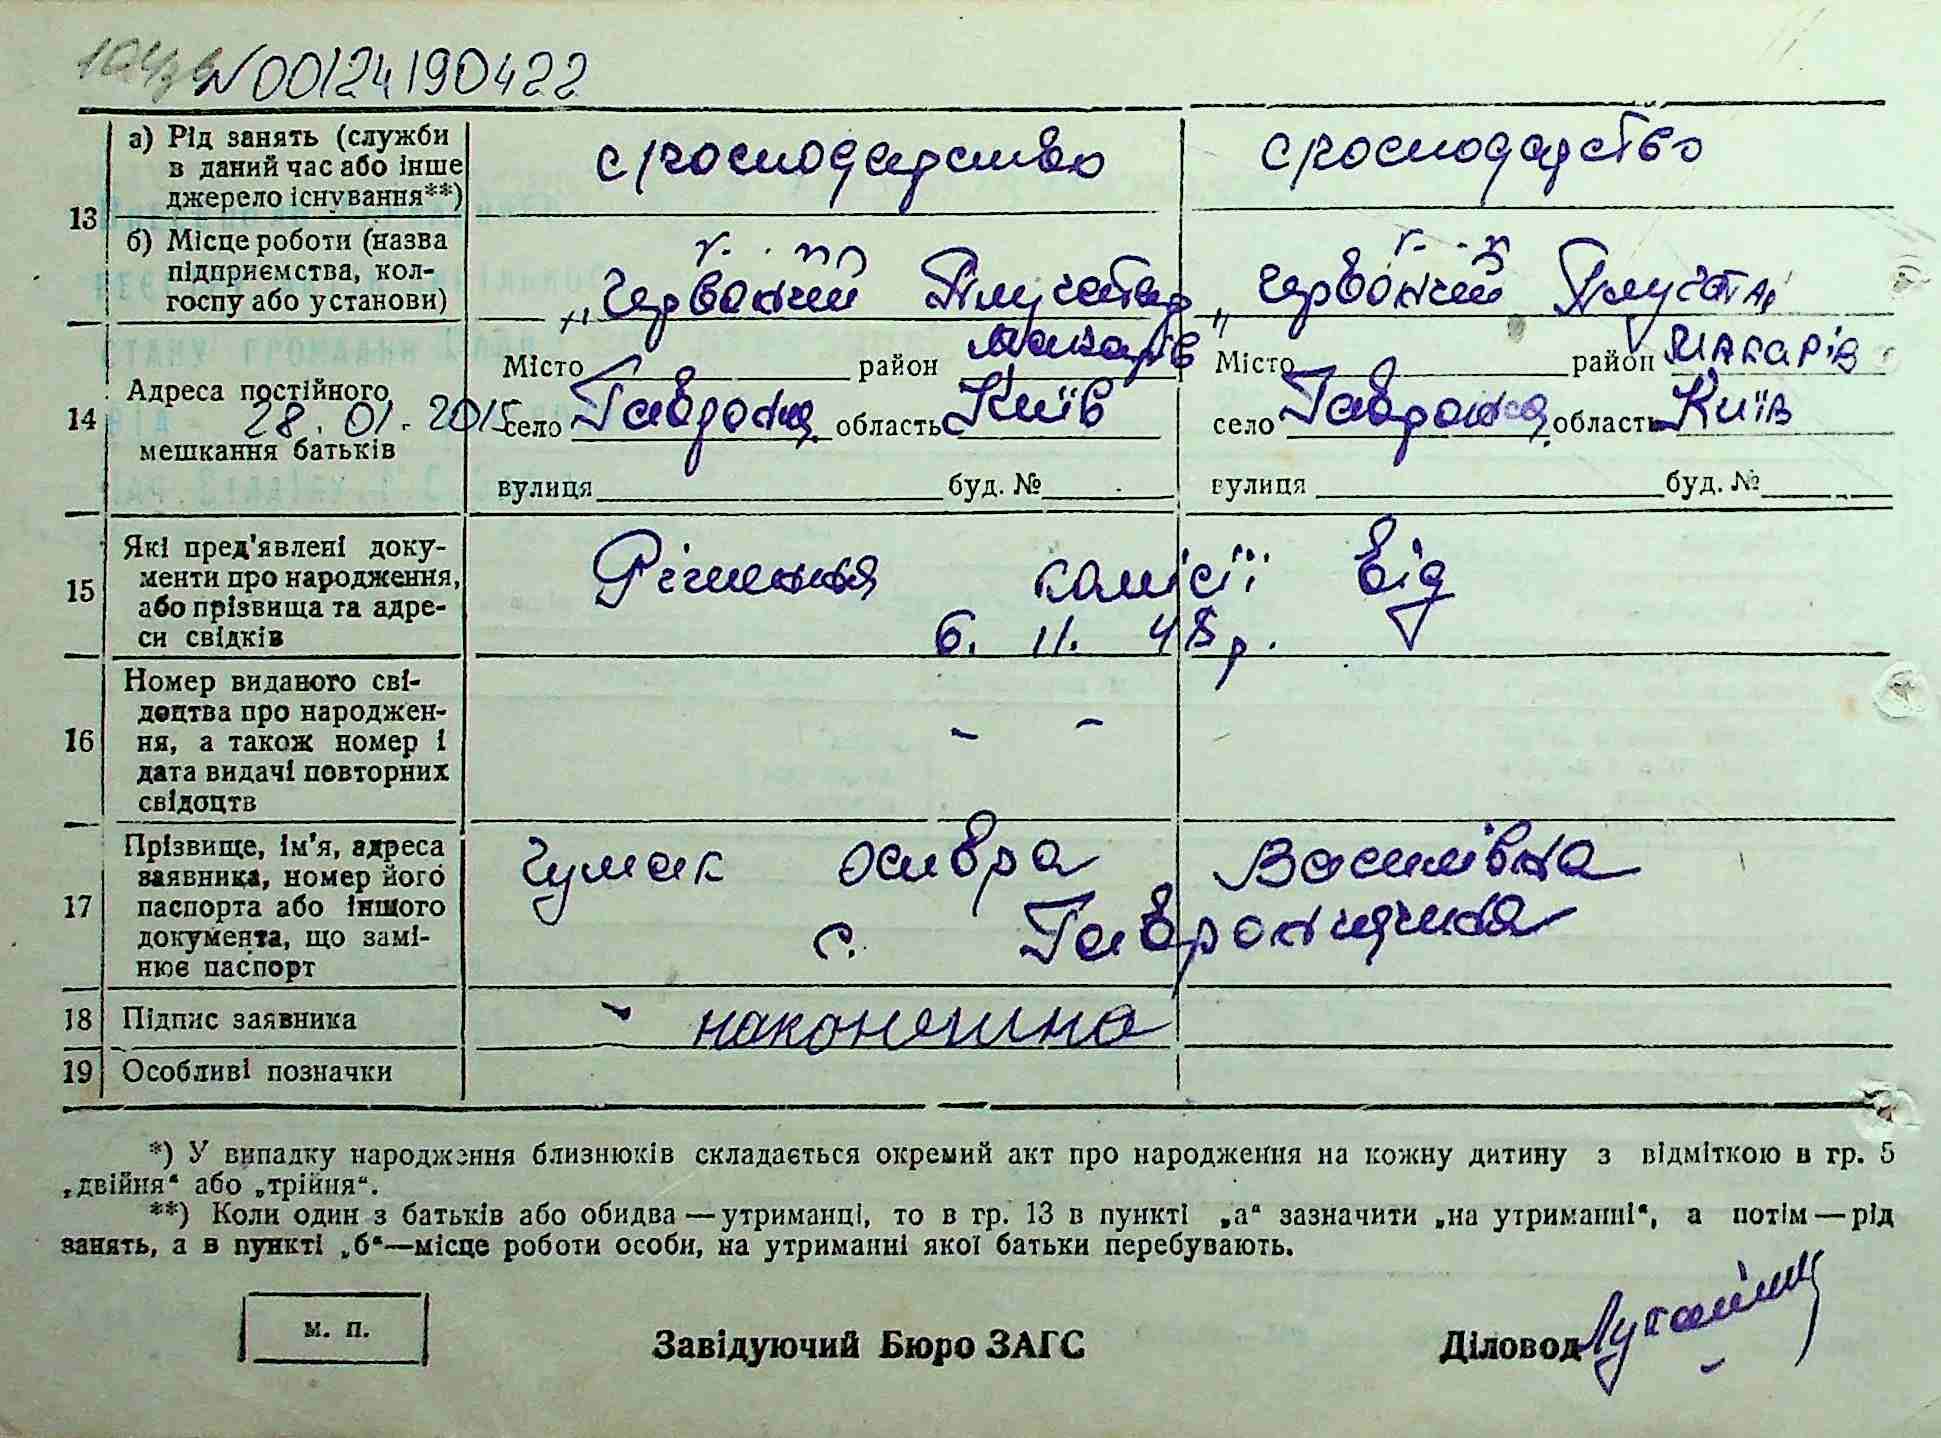 N00124190422
13
а) Рід занять (служби в даний час або інше джерело існування**)
с/господарство
с/господарство
б) Місце роботи (назва підприємства, колгоспу або установи)
„Червоний
„Червоний
14
Адреса постійного мешкання батьків
28.01.2015
Місто район Макарів
село область Київ
вулиця буд. №
Місто район Макарів
село область Київ
вулиця буд. №
15
Які пред'явлені документи про народження, або прізвища та адреси свідків
Рішення комісії від
6. 11. 48 р.
16
Номер виданого свідоцтва про народження, а також номер і дата видачі повторних свідоцтв
– –
17
Прізвище, ім'я, адреса заявника, номер його паспорта або іншого документа, що замінює паспорт
Чумак Василівна
с. Гавронщина
18
Підпис заявника
19
Особливі позначки
*) У випадку народження близнюків складається окремий акт про народження на кожну дитину з відміткою в гр. 5
„двійня“ або „трійня“.
**) Коли один з батьків або обидва — утриманці, то в гр. 13 в пункті „а“ зазначити „на утриманні“, а потім — рід
занять, а в пункті „б“—місце роботи особи, на утриманні якої батьки перебувають.
м. п.
Завідуючий Бюро ЗАГС
Діловод